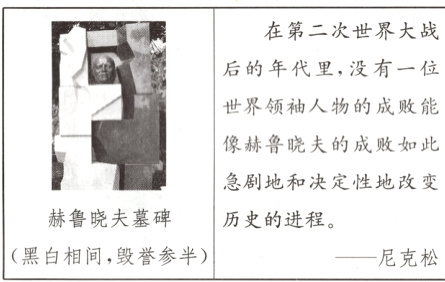 赫鲁晓夫墓碑
(黑白相间,毁誉参半)
在第二次世界大战
后的年代里,没有一位
世界领袖人物的成败能
像赫鲁晓夫的成败如此
急剧地和决定性地改变
历史的进程。
——尼克松